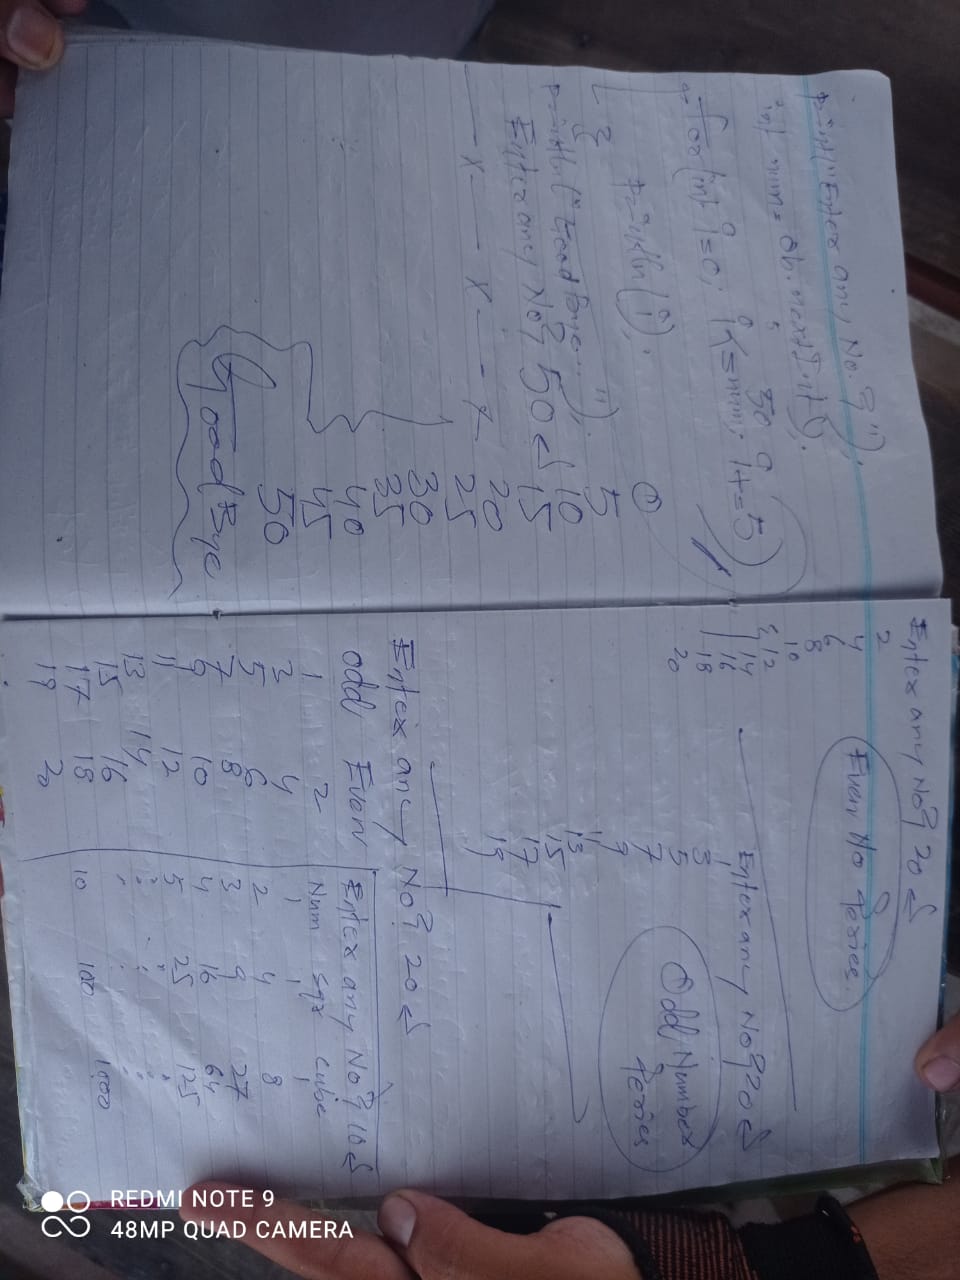 print("Enter any No.?");
int num= ob.nextInt();
50
for(int i=0; i<=num; i+=5)
{
println(i);
}
println("Good Bye..");
Enter any No? 50
0
5
10
15
20
25
30
35
40
45
50
Good Bye
Enter any No? 20
2
4
6
8
10
12
14
16
18
20
Even No Series
Enter any No? 20
1
3
5
7
9
11
13
15
17
19
Odd Number
Series
Enter any No? 20
odd Even
1 2
3 4
5 6
7 8
9 10
11 12
13 14
15 16
17 18
19 20
Enter any No? 10
Num sqr cube
1 1 1
2 4 8
3 9 27
4 16 64
5 25 125
10 100 1000
REDMI NOTE 9
48MP QUAD CAMERA